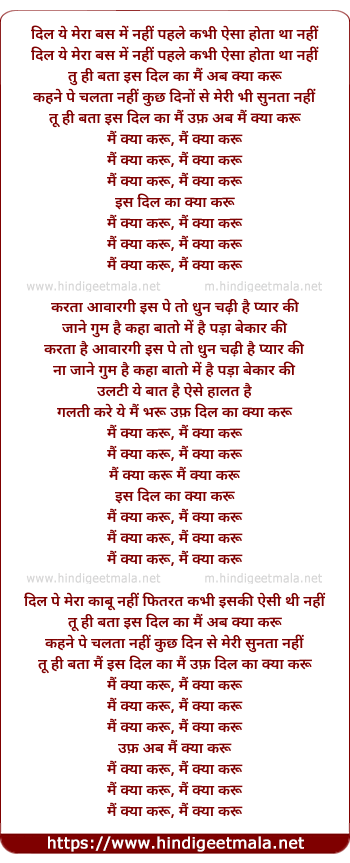 दिल ये मेरा बस में नहीं पहले कभी ऐसा होता था नहीं
दिल ये मेरा बस में नहीं पहले कभी ऐसा होता था नहीं
तु ही बता इस दिल का मैं अब क्या करू
कहने पे चलता नहीं कुछ दिनों से मेरी भी सुनता नहीं
तू ही बता इस दिल का मैं उफ़ अब मैं क्या करू
मैं क्या करू, मैं क्या करू
मैं क्या करू, मैं क्या करू
मैं क्या करू, मैं क्या करू
इस दिल का क्या करू
मैं क्या करू, मैं क्या करू
मैं क्या करू, मैं क्या करू
मैं क्या करू, मैं क्या करू
www.hindigeetmala.net m.hindigeetmala.net
करता आवारगी इस पे तो धुन चढ़ी है प्यार की
जाने गुम है कहा बातो में है पड़ा बेकार की
करता है आवारगी इस पे तो धुन चढ़ी है प्यार की
ना जाने गुम है कहा बातो में है पड़ा बेकार की
उलटी ये बात है ऐसे हालत है
गलती करे ये मैं भरू उफ़ दिल का क्या करू
मैं क्या करू, मैं क्या करू
मैं क्या करू, मैं क्या करू
मैं क्या करू मैं क्या करू
इस दिल का क्या करू
मैं क्या करू, मैं क्या करू
मैं क्या करू, मैं क्या करू
मैं क्या करू, मैं क्या करू
www.hindigeetmala.net m.hindigeetmala.net
दिल पे मेरा काबू नहीं फितरत कभी इसकी ऐसी थी नहीं
तू ही बता इस दिल का मैं अब क्या करू
कहने पे चलता नहीं कुछ दिन से मेरी सुनता नहीं
तू ही बता मैं इस दिल का मैं उफ़ दिल का क्या करू
मैं क्या करू, मैं क्या करू
मैं क्या करू, मैं क्या करू
मैं क्या करू, मैं क्या करू
उफ़ अब मैं क्या करू
मैं क्या करू, मैं क्या करू
मैं क्या करू, मैं क्या करू
मैं क्या करू, मैं क्या करू
https://www.hindigeetmala.net